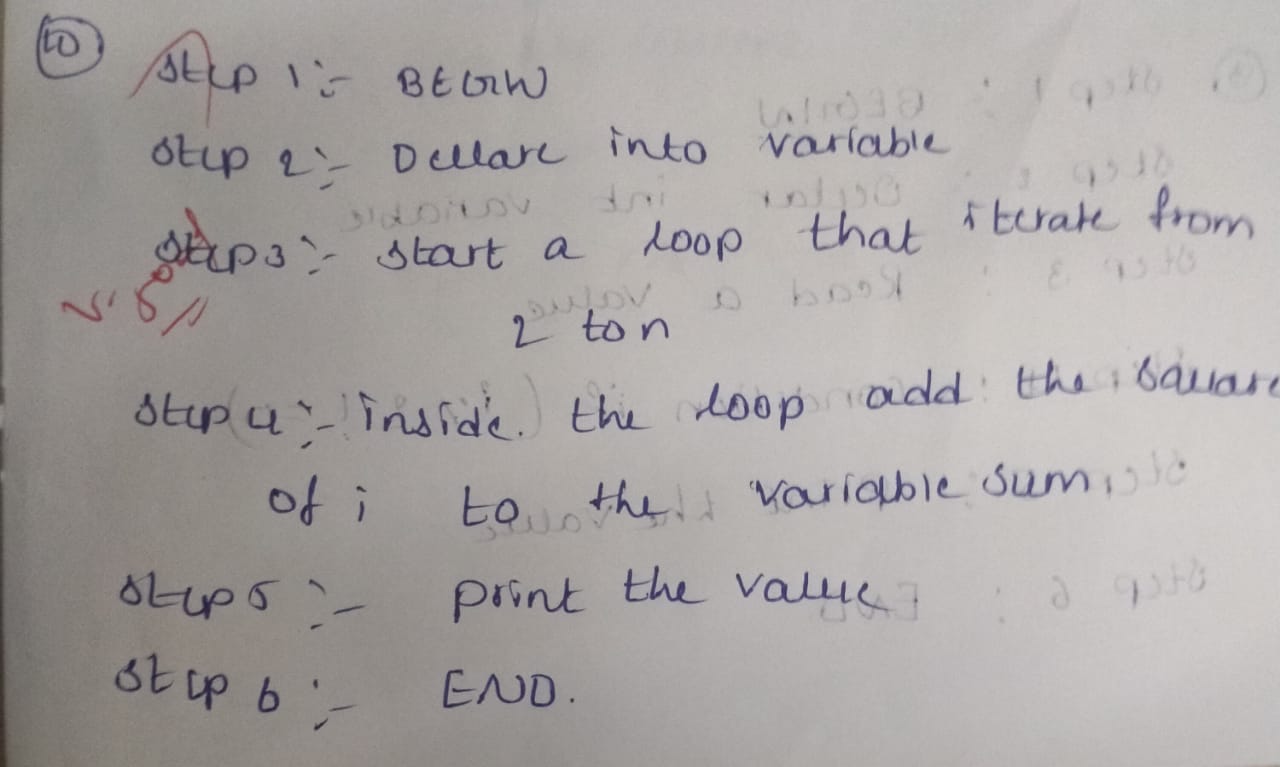 10 Step 1:- BEGIN
Step 2:- Declare into variable
Step 3:- Start a loop that iterate from
2 to n
Step 4:- inside. the loop add the square
of i to the variable sum
Step 5:- print the value
Step 6:- END.